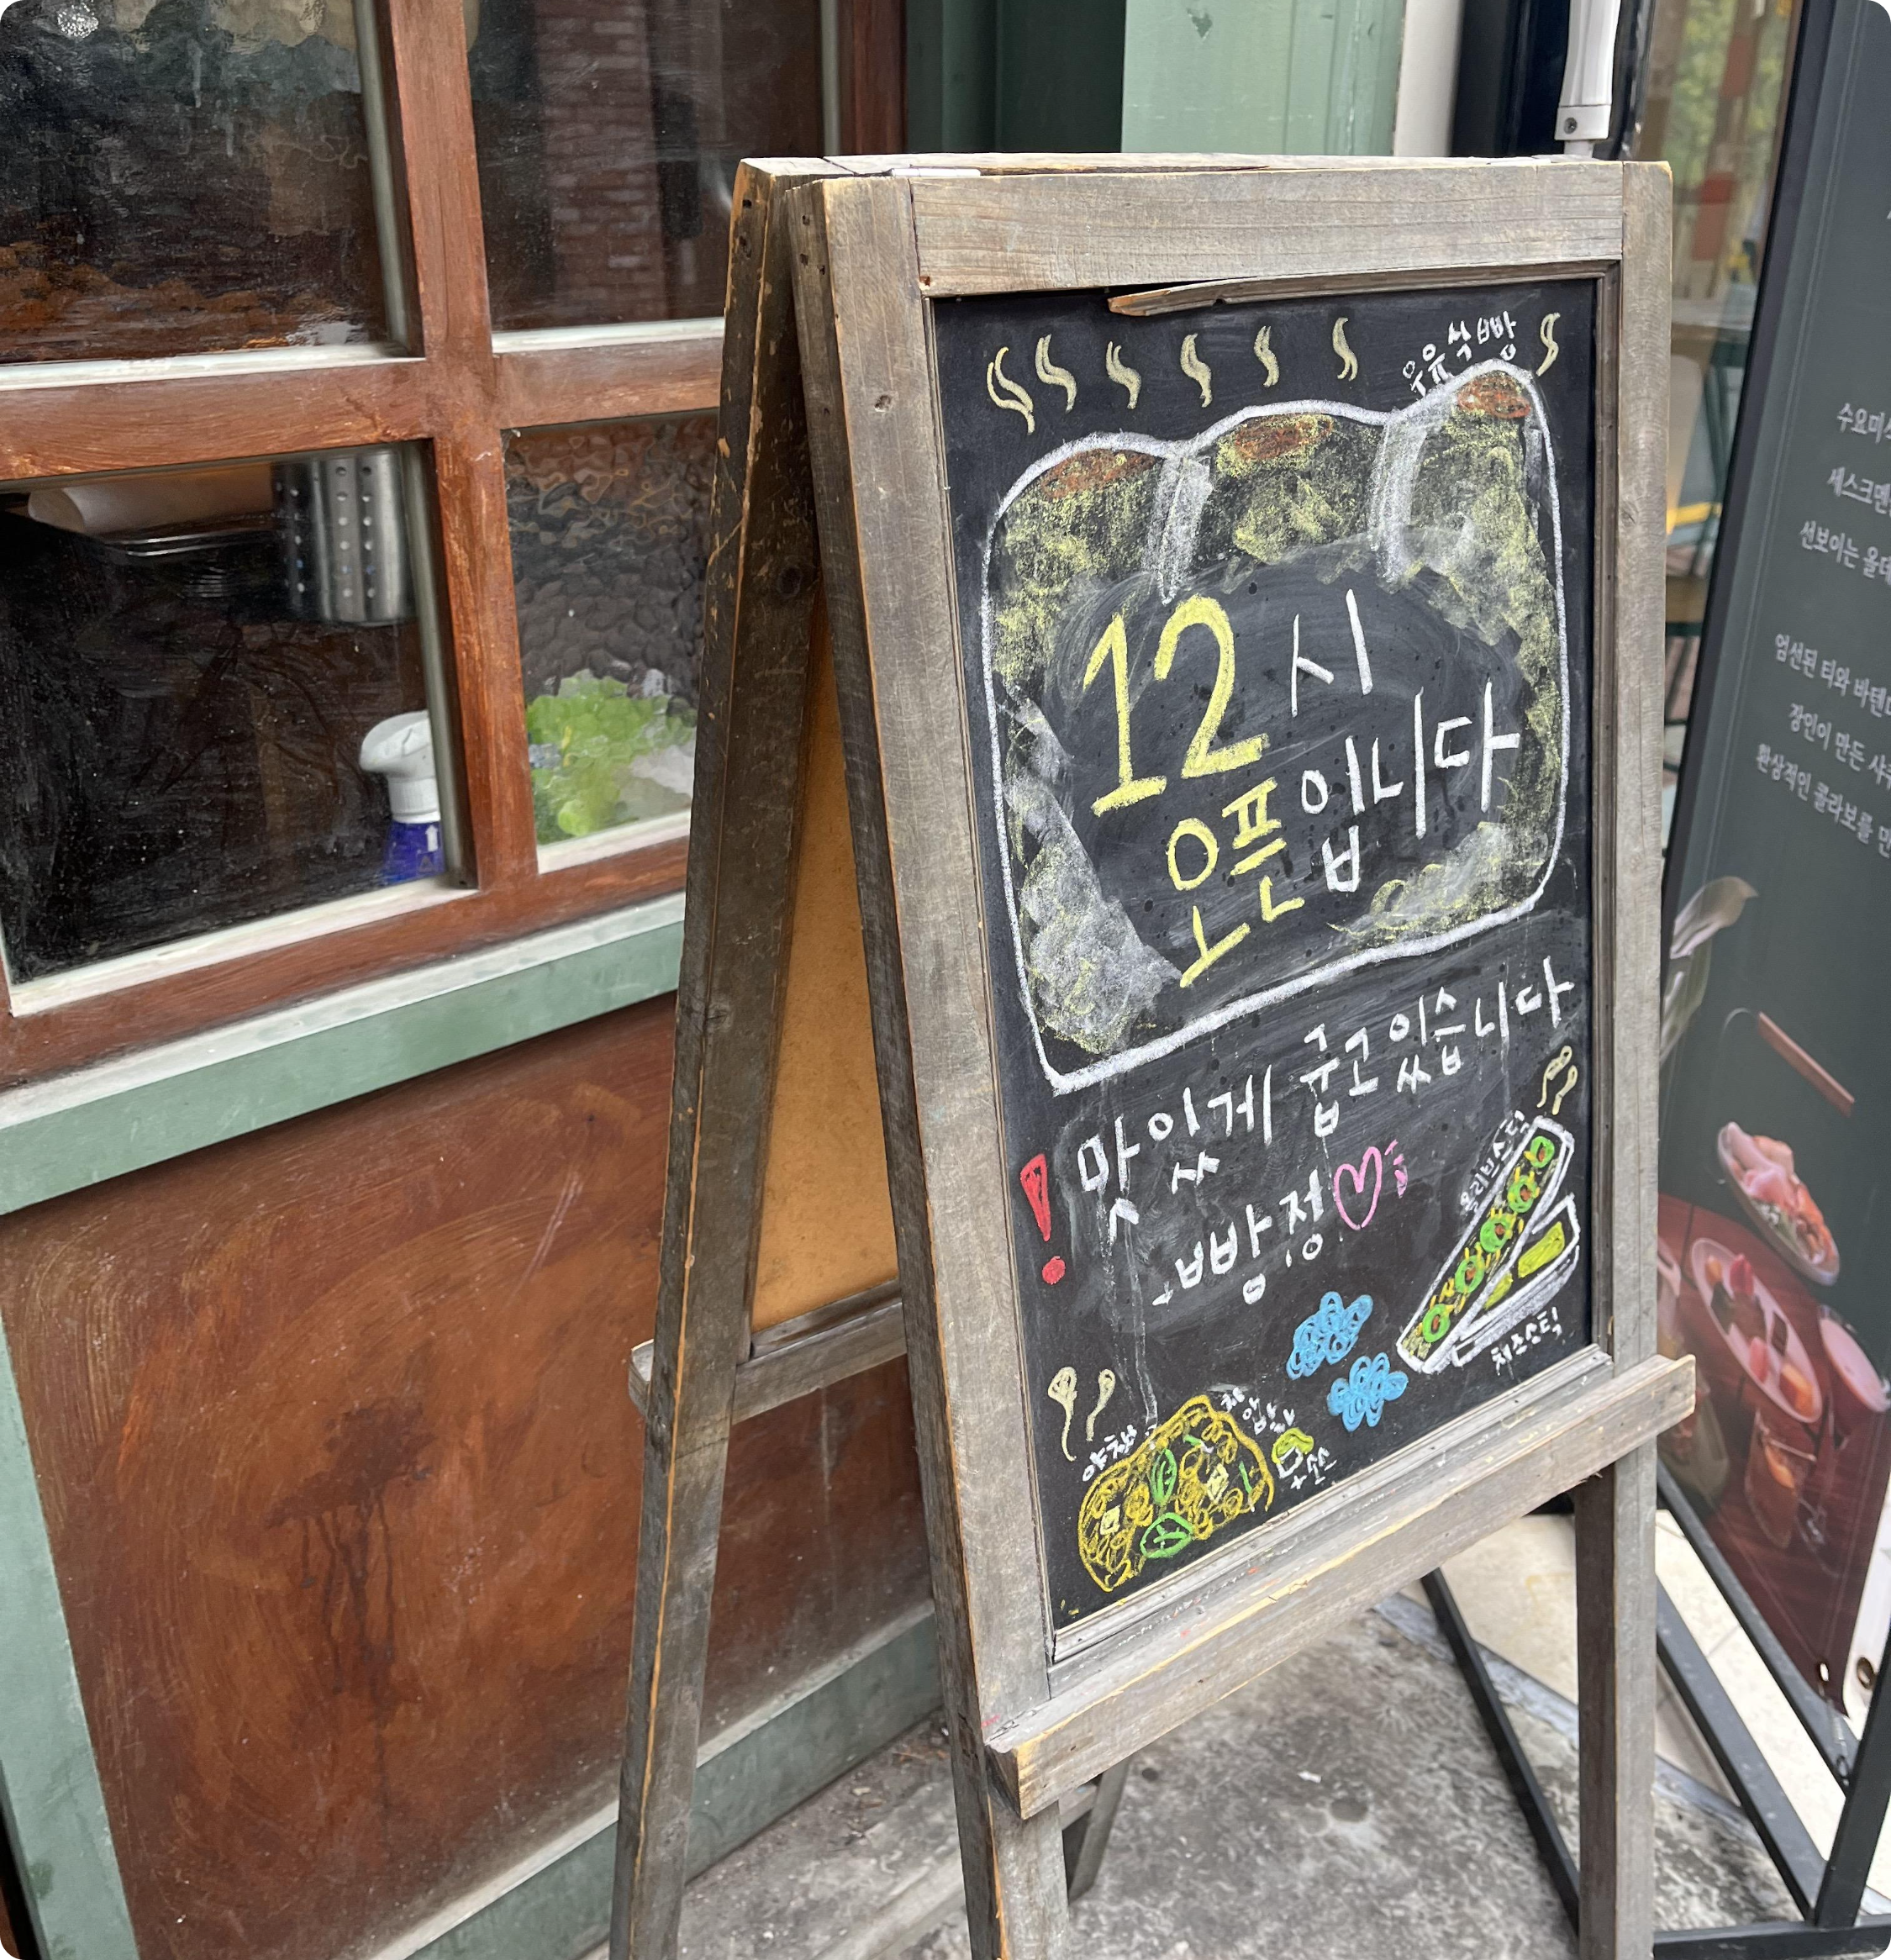 우유식빵
12시
오픈입니다
맛있게 굽고있습니다
빵정
올리브스틱
치즈스틱
야채
치아바타
+소스
수요미
세스크멘
선보이는 올데
엄선된 티와 바텐더
장인이 만든 샤퀴
환상적인 콜라보를 만